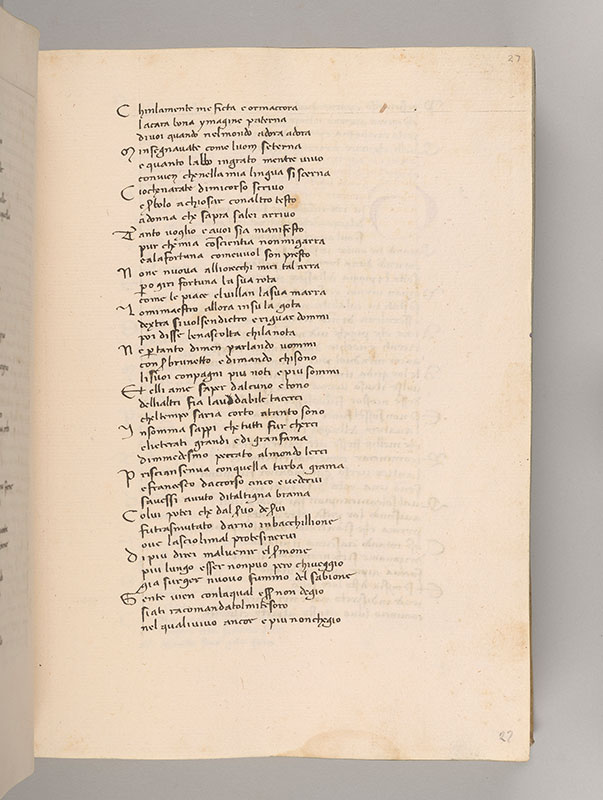 27
C hinlamente me ficta e ormaccora
lacara bona ymagine paterna
divoi quando nelmondo adora adora
M insegnavate come luom seterna
e quanto labbo ingrato mentre vivo
convien che nella mia lingua si scerna
C ioche narate di mi corso scrivo
e serbolo a chiosar con altro testo
a donna che sapra salei arrivo
T anto voglio e avoi sia manifesto
pur che mia conscientia non mi garra
e ala fortuna come vuol son presto
N one nuova alliorecchi miei tal arra
pero giri fortuna la sua rota
come le piace el villan la sua marra
L o mi maestro allora in su la gota
dextra si volsendietro e riguardommi
poi disse bena scolta chi la nota
N e per tanto dimen parlando vommi
con ser brunetto e dimando chi sono
li suoi conpagni piu noti e piu sommi
Et elli ame saper dalcuno e bono
delli altri fia laudabile tacerci
chel tempo saria corto a tanto sono
I nsomma sappi che tutti fur cherci
e licterati grandi e di gran fama
dimmedesmo peccato al mondo lerci
P riscian senva con quella turba grama
e francesco daccorso anco e vedervi
savessi avuto di tal tigna brama
C olui potei che dal servo de servi
fu trasmutato darno in bacchillione
ove lascio li mal protesi nervi
D i piu direi mal venir el sermone
piu lungo esser non puo pero chi veggio
gia surger nuovo fummo del sabione
G ente vien con la qual esser non degio
siati racomandatol mi tesoro
nel qual i vivo ancor e piu non chegio
27